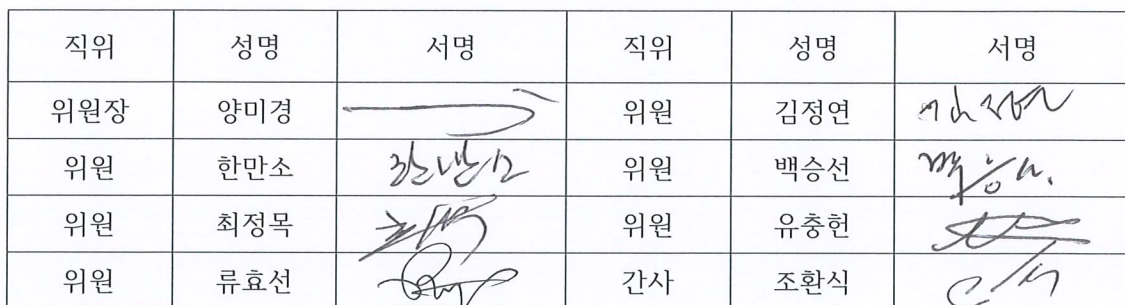 직위 성명 서명 직위 성명 서명
위원장 양미경 위원 김정연
위원 한만소 위원 백승선
위원 최정목 위원 유충헌
위원 류효선 간사 조환식